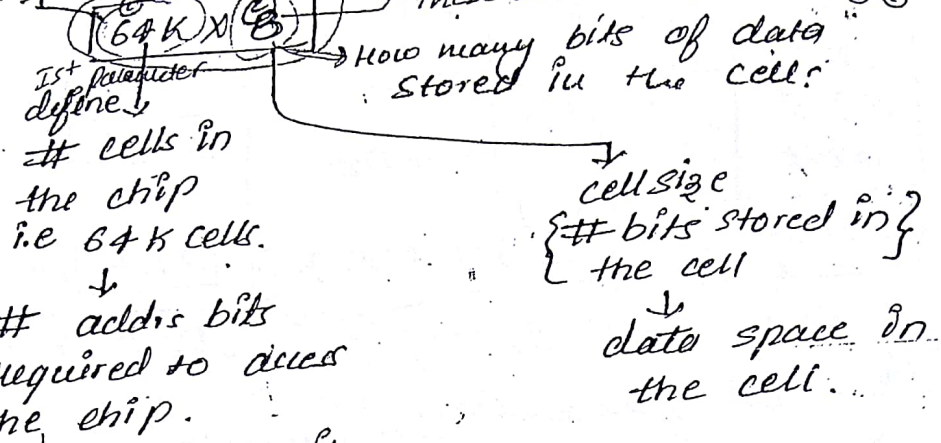 64K X 8
→ How many bits of data
stored in the cell?
Ist parameter
define
# cells in
the chip
i.e 64K cells.
↓
# addrs bits
required to access
the chip.
cell size
{# bits stored in}
the cell
↓
data space in
the cell.